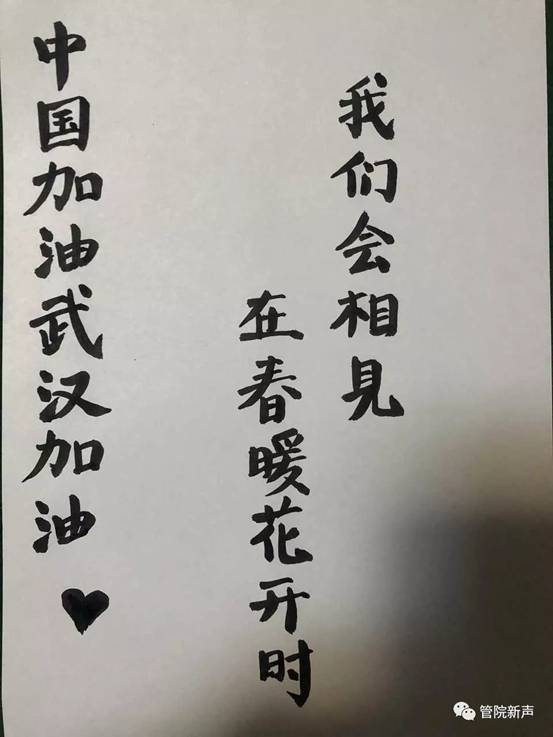 我们会相見
在春暖花开时
中国加油武汉加油
管院新声